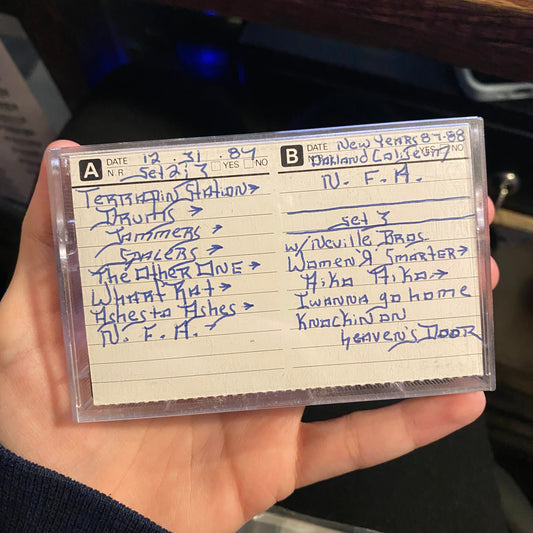 A DATE 12.31.87
N.R Set 2 & 3 YES NO
Terrapin Station →
Drums →
Jammers →
Spacers →
The Other One →
Wharf Rat →
Ashes to Ashes →
N. F. A. →
B DATE New Years 87-88
N.R Oakland Coliseum YES NO
N. F. A.
Set 3
w/ Neville Bros.
Women R Smarter →
Aiko Aiko →
I wanna go home
Knockin on
Heaven's Door